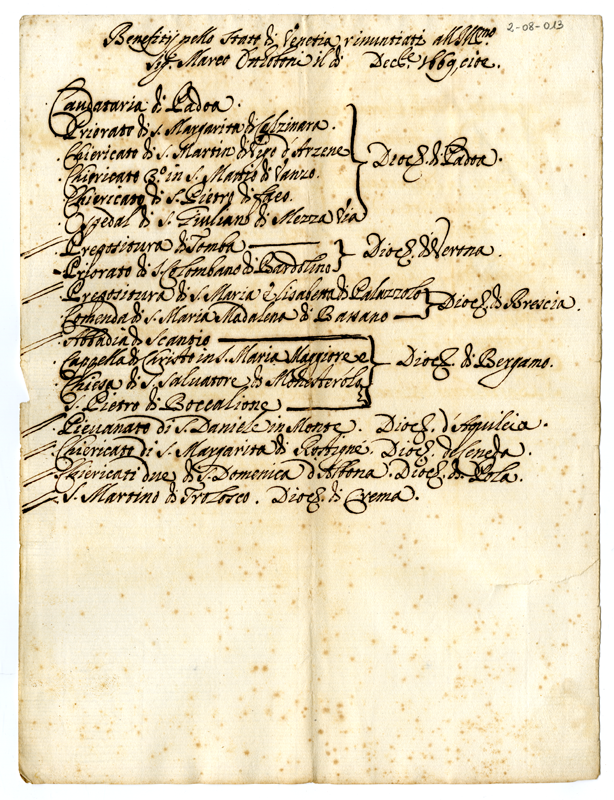 2-08-013
Benefitij nello Stato di Venetia rinuntiati all'Ill.mo
Sig. Marco Ottoboni il di Decbr. 1669, cioè.
Caudataria di Padoa.
Priorato di S. Margarita di
Chiericato di S. Martin di Vigo d'Arzene
Chiericato 3.o in S. Martio di Vanzo.
Chiericato di S. Pietro di
Ospedal di S. Giuliano di Mezza Via
Dioc. di Padoa.
Prepositura di Tomba
Priorato di S. Colombano di Bardolino
Dioc. di Verona.
Prepositura di S. Maria Elisabetta di Palazzolo
Comenda di S. Maria Madalena di Bassano
Dioc. di Brescia.
Abbadia di Scanzio
Cappella di Christo in S. Maria Maggiore e
Chiesa di S. Salvatore di Monasterolo
S. Pietro di Boccalione
Dioc. di Bergamo.
Pievanato di S. Daniele in Monte. Dioc. d'Aquileia.
Chiericato di S. Margarita di Dioc. di Ceneda.
Chiericati due di S. Domenica d'Albona. Dioc. di Pola.
S. Martino di Dioc. di Crema.